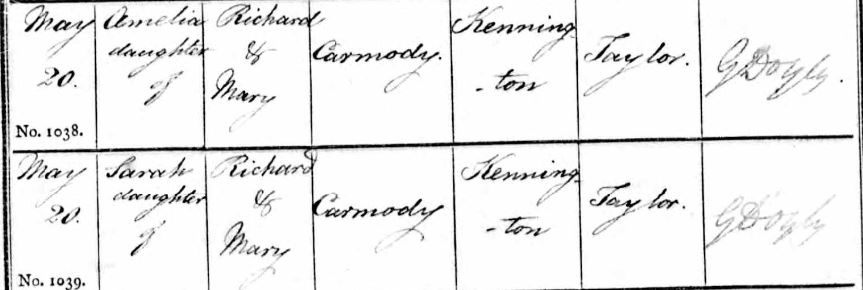 May Amelia Richard Carmody. Kenning Taylor. G Doyly.
20. daughter & -ton
of Mary
No. 1038.
May Sarah Richard Carmody Kenning- Taylor. G Doyly
20. daughter & -ton
of Mary
No. 1039.